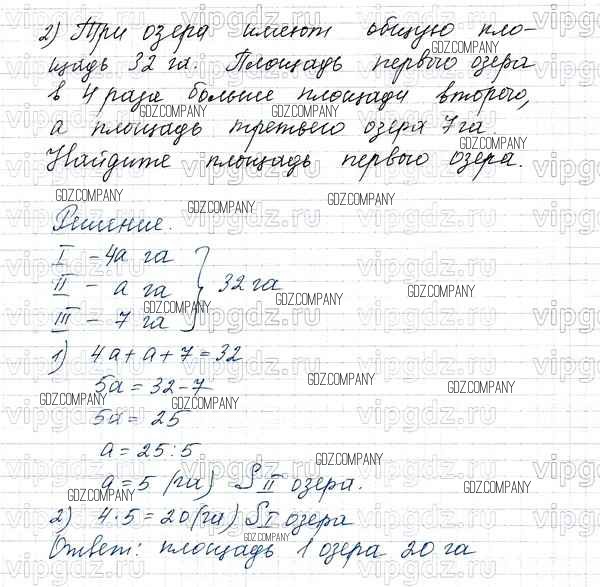 2) Три озера имеют общую пло-
щадь 32 га. Площадь первого озера
в 4 раза больше площади второго,
а площадь третьего озера 7 га.
Найдите площадь первого озера.
Решение.
I - 4а га
II - а га } 32 га
III - 7 га
1) 4а + а + 7 = 32
5а = 32 - 7
5а = 25
а = 25 : 5
а = 5 (га) S II озера.
2) 4 · 5 = 20 (га) S I озера
Ответ: площадь 1 озера 20 га